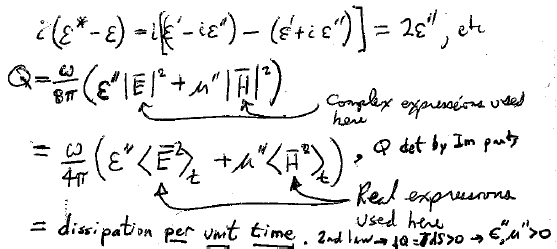 i(ε* - ε) = i[(ε' - iε'') - (ε' + iε'')] = 2ε'', etc
Q = ω/8π (ε''|E̅|² + μ''|H̅|²)
Complex expressions used
here
= ω/4π (ε''<E̅²>t + μ''<H̅²>t), Q det by Im parts
Real expressions
used here
= dissipation per unit time. 2nd law → dQ = TdS>0 → ε'', μ''>0